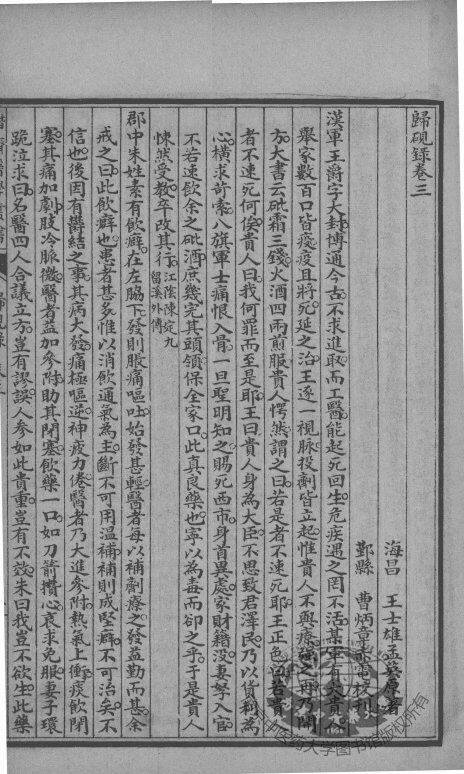 歸硯錄卷三
海昌 王士雄孟英
鄞縣 曹炳章赤電校刊
漢軍王爵字大封博通今古不求進取而工醫能起死回生危疾遇之罔不活某軍有大貴
舉家數百口皆疫疫且將死延之治王逐一視脈投劑皆立起惟貴人不與療
方大書云砒霜三錢火酒四兩煎服貴人愕然謂之曰若是者不速死耶王正色曰若貴
者不速死何俟貴人曰我何罪而至是耶王曰貴人身為大臣不思致君澤民乃以貨利為
心橫求苛索八旗軍士痛恨入骨一旦聖明知之賜死西市身首異處家財籍沒妻孥入官
不若速飲余之砒酒庶幾完其頭領保全家口此真良藥也寧以為毒而卻之乎于是貴人
悚然受教卒改其行江陰陳定九留溪外傳
郡中朱姓素有飲癖在左脇下發則脹痛嘔吐始發甚輕醫者每以補劑療之發益勤而甚余
戒之曰此飲癖也患者甚多惟以消飲通氣為主斷不可用溫補補則成堅癖不可治矣不
信也後因有鬱結之事其病大發痛極嘔逆神疲力倦醫者乃大進參附熱氣上衝痰飲閉
塞其痛加劇肢冷脈微醫者益加參附助其閉塞飲藥一口如刀箭攢心哀求免服妻子環
跪泣求曰名醫四人合議立方豈有謬誤人參如此貴重豈有不效朱曰我豈不欲生此藥
中医药大学图书馆版权所有